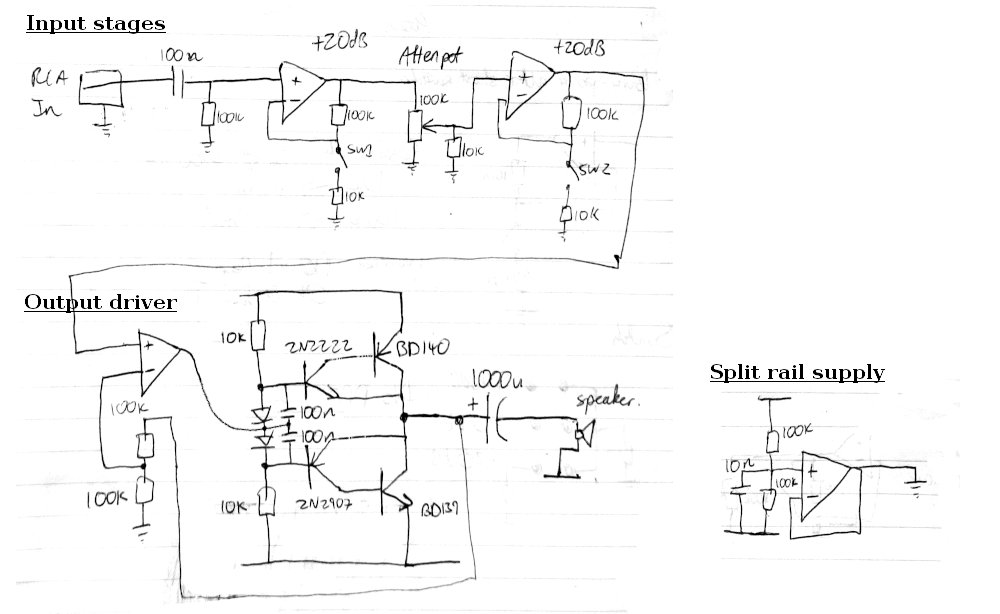 Input stages
+20dB
+20dB
100n
Atten pot
RCA
In
100K
100K
100K
100K
SW1
10K
SW2
10K
10K
Output driver
10K
2N2222
BD140
1000u
+
speaker.
100n
100n
100K
100K
10K
2N2907
BD139
+
-
+
-
+
-
Split rail supply
100K
10n
100K
+
-